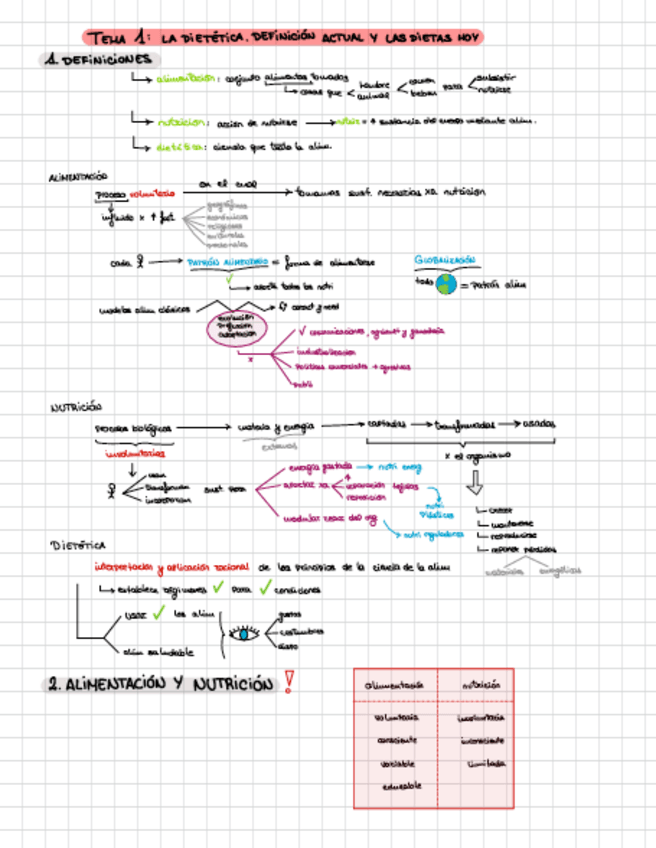 TEMA 1: LA DIETÉTICA. DEFINICIÓN ACTUAL Y LAS DIETAS HOY
1. DEFINICIONES
alimentación: conjunto alimentos tomados
cosas que hombre animal comen beben para subsistir nutrirse
nutrición: acción de nutrirse → nutrir = ↑ sustancia del cuerpo mediante alim.
dietética: ciencia que trata la alim.
ALIMENTACIÓN
proceso voluntario en el cual → tomamos sust. necesarias xa nutrición
influido x ↑ fact
geográficos
económicos
religiosos
culturales
personales
cada → PATRÓN ALIMENTARIO = forma de alimentarse
GLOBALIZACIÓN
todo = patrón alim
modelos alim clásicos
evolución
adaptación
x
✓ comunicaciones, agricult y ganadería
industrialización
políticas comerciales
NUTRICIÓN
procesos biológicos → materia y energía → captadas → transformadas → usadas
involuntarios
externas
x el organismo
usan
transforman
incorporan
sust para
energía gastada → nutri energ
aportar xa
reparación tejidos
nutri plásticos
modular reacc del org → nutri reguladores
crecer
mantenerse
reproducirse
reponer pérdidas
materiales energéticas
DIETÉTICA
interpretación y aplicación racional de los principios de la ciencia de la alim
establece regímenes ✓ para ✓ condiciones
usar ✓ los alim
gustos
costumbres
alim saludable
2. ALIMENTACIÓN Y NUTRICIÓN !
alimentación nutrición
voluntaria involuntaria
consciente inconsciente
variable limitada
educable